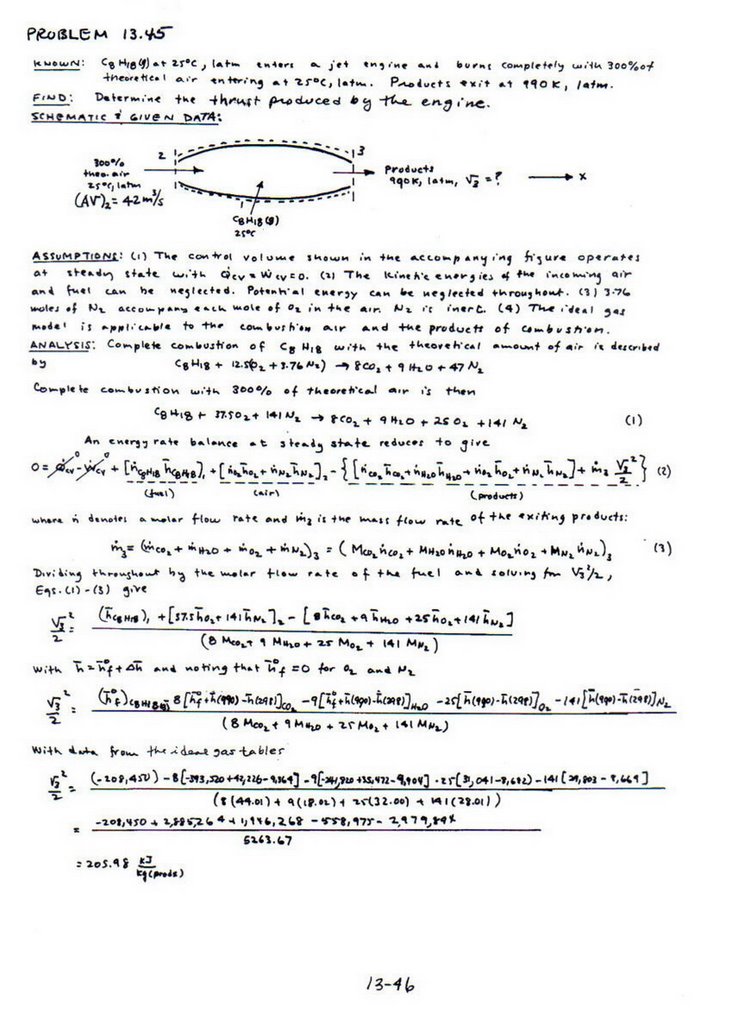 PROBLEM 13.45
KNOWN: C8H18(g) at 25°C, 1atm enters a jet engine and burns completely with 300% of
theoretical air entering at 25°C, 1atm. Products exit at 990K, 1atm.
FIND: Determine the thrust produced by the engine.
SCHEMATIC & GIVEN DATA:
2
3
300%
theo. air
25°C, 1atm
(AV)2 = 42 m³/s
Products
990K, 1atm, V3 = ?
x
1
C8H18(g)
25°C
ASSUMPTIONS: (1) The control volume shown in the accompanying figure operates
at steady state with Q̇cv = Ẇcv = 0. (2) The kinetic energies of the incoming air
and fuel can be neglected. Potential energy can be neglected throughout. (3) 3.76
moles of N2 accompany each mole of O2 in the air. N2 is inert. (4) The ideal gas
model is applicable to the combustion air and the products of combustion.
ANALYSIS: Complete combustion of C8H18 with the theoretical amount of air is described
by C8H18 + 12.5(O2 + 3.76 N2) → 8CO2 + 9H2O + 47 N2
Complete combustion with 300% of theoretical air is then
C8H18 + 37.5O2 + 141 N2 → 8CO2 + 9H2O + 25O2 + 141 N2 (1)
An energy rate balance at steady state reduces to give
0 = Q̇cv⁰ - Ẇcv⁰ + [ṅC8H18 h̄C8H18]1 + [ṅO2 h̄O2 + ṅN2 h̄N2]2 - {[ṅCO2 h̄CO2 + ṅH2O h̄H2O + ṅO2 h̄O2 + ṅN2 h̄N2] + ṁ3 V3²/2} (2)
(fuel) (air) (products)
where ṅ denotes a molar flow rate and ṁ3 is the mass flow rate of the exiting products:
ṁ3 = (ṁCO2 + ṁH2O + ṁO2 + ṁN2)3 = (MCO2 ṅCO2 + MH2O ṅH2O + MO2 ṅO2 + MN2 ṅN2)3 (3)
Dividing throughout by the molar flow rate of the fuel and solving for V3²/2,
Eqs. (1) - (3) give
V3²/2 = (h̄C8H18)1 + [37.5 h̄O2 + 141 h̄N2]2 - [8 h̄CO2 + 9 h̄H2O + 25 h̄O2 + 141 h̄N2]
(8 MCO2 + 9 MH2O + 25 MO2 + 141 MN2)
With h̄ = h̄f° + Δh̄ and noting that h̄f° = 0 for O2 and N2
V3²/2 = (h̄f°)C8H18(g) - 8[h̄f° + h̄(990) - h̄(298)]CO2 - 9[h̄f° + h̄(990) - h̄(298)]H2O - 25[h̄(990) - h̄(298)]O2 - 141[h̄(990) - h̄(298)]N2
(8 MCO2 + 9 MH2O + 25 MO2 + 141 MN2)
With data from the ideal gas tables
V3²/2 = (-208,450) - 8[-393,520 + 42,226 - 9,364] - 9[-241,820 + 35,472 - 9,904] - 25[31,041 - 8,682] - 141[29,803 - 8,669]
(8(44.01) + 9(18.02) + 25(32.00) + 141(28.01))
= -208,450 + 2,885,264 + 1,946,268 - 558,975 - 2,979,894
5263.67
= 205.98 kJ/kg(prods)
13-46